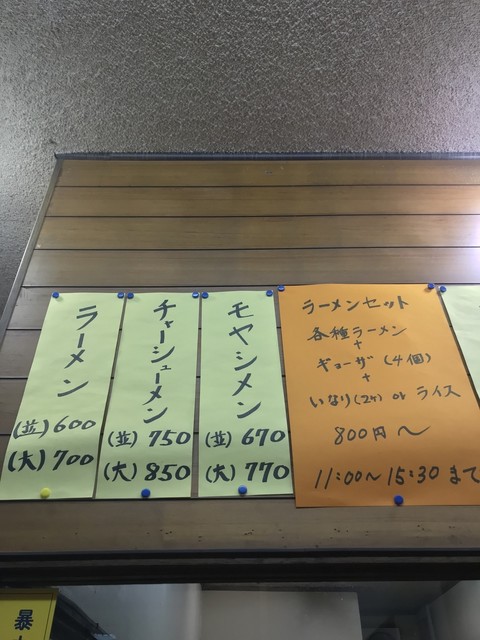 ラーメン
(並) 600
(大) 700
チャーシューメン
(並) 750
(大) 850
モヤシメン
(並) 670
(大) 770
ラーメンセット
各種ラーメン
+
ギョーザ (4個)
+
いなり(2ヶ) or ライス
800円〜
11:00〜15:30まで
暴